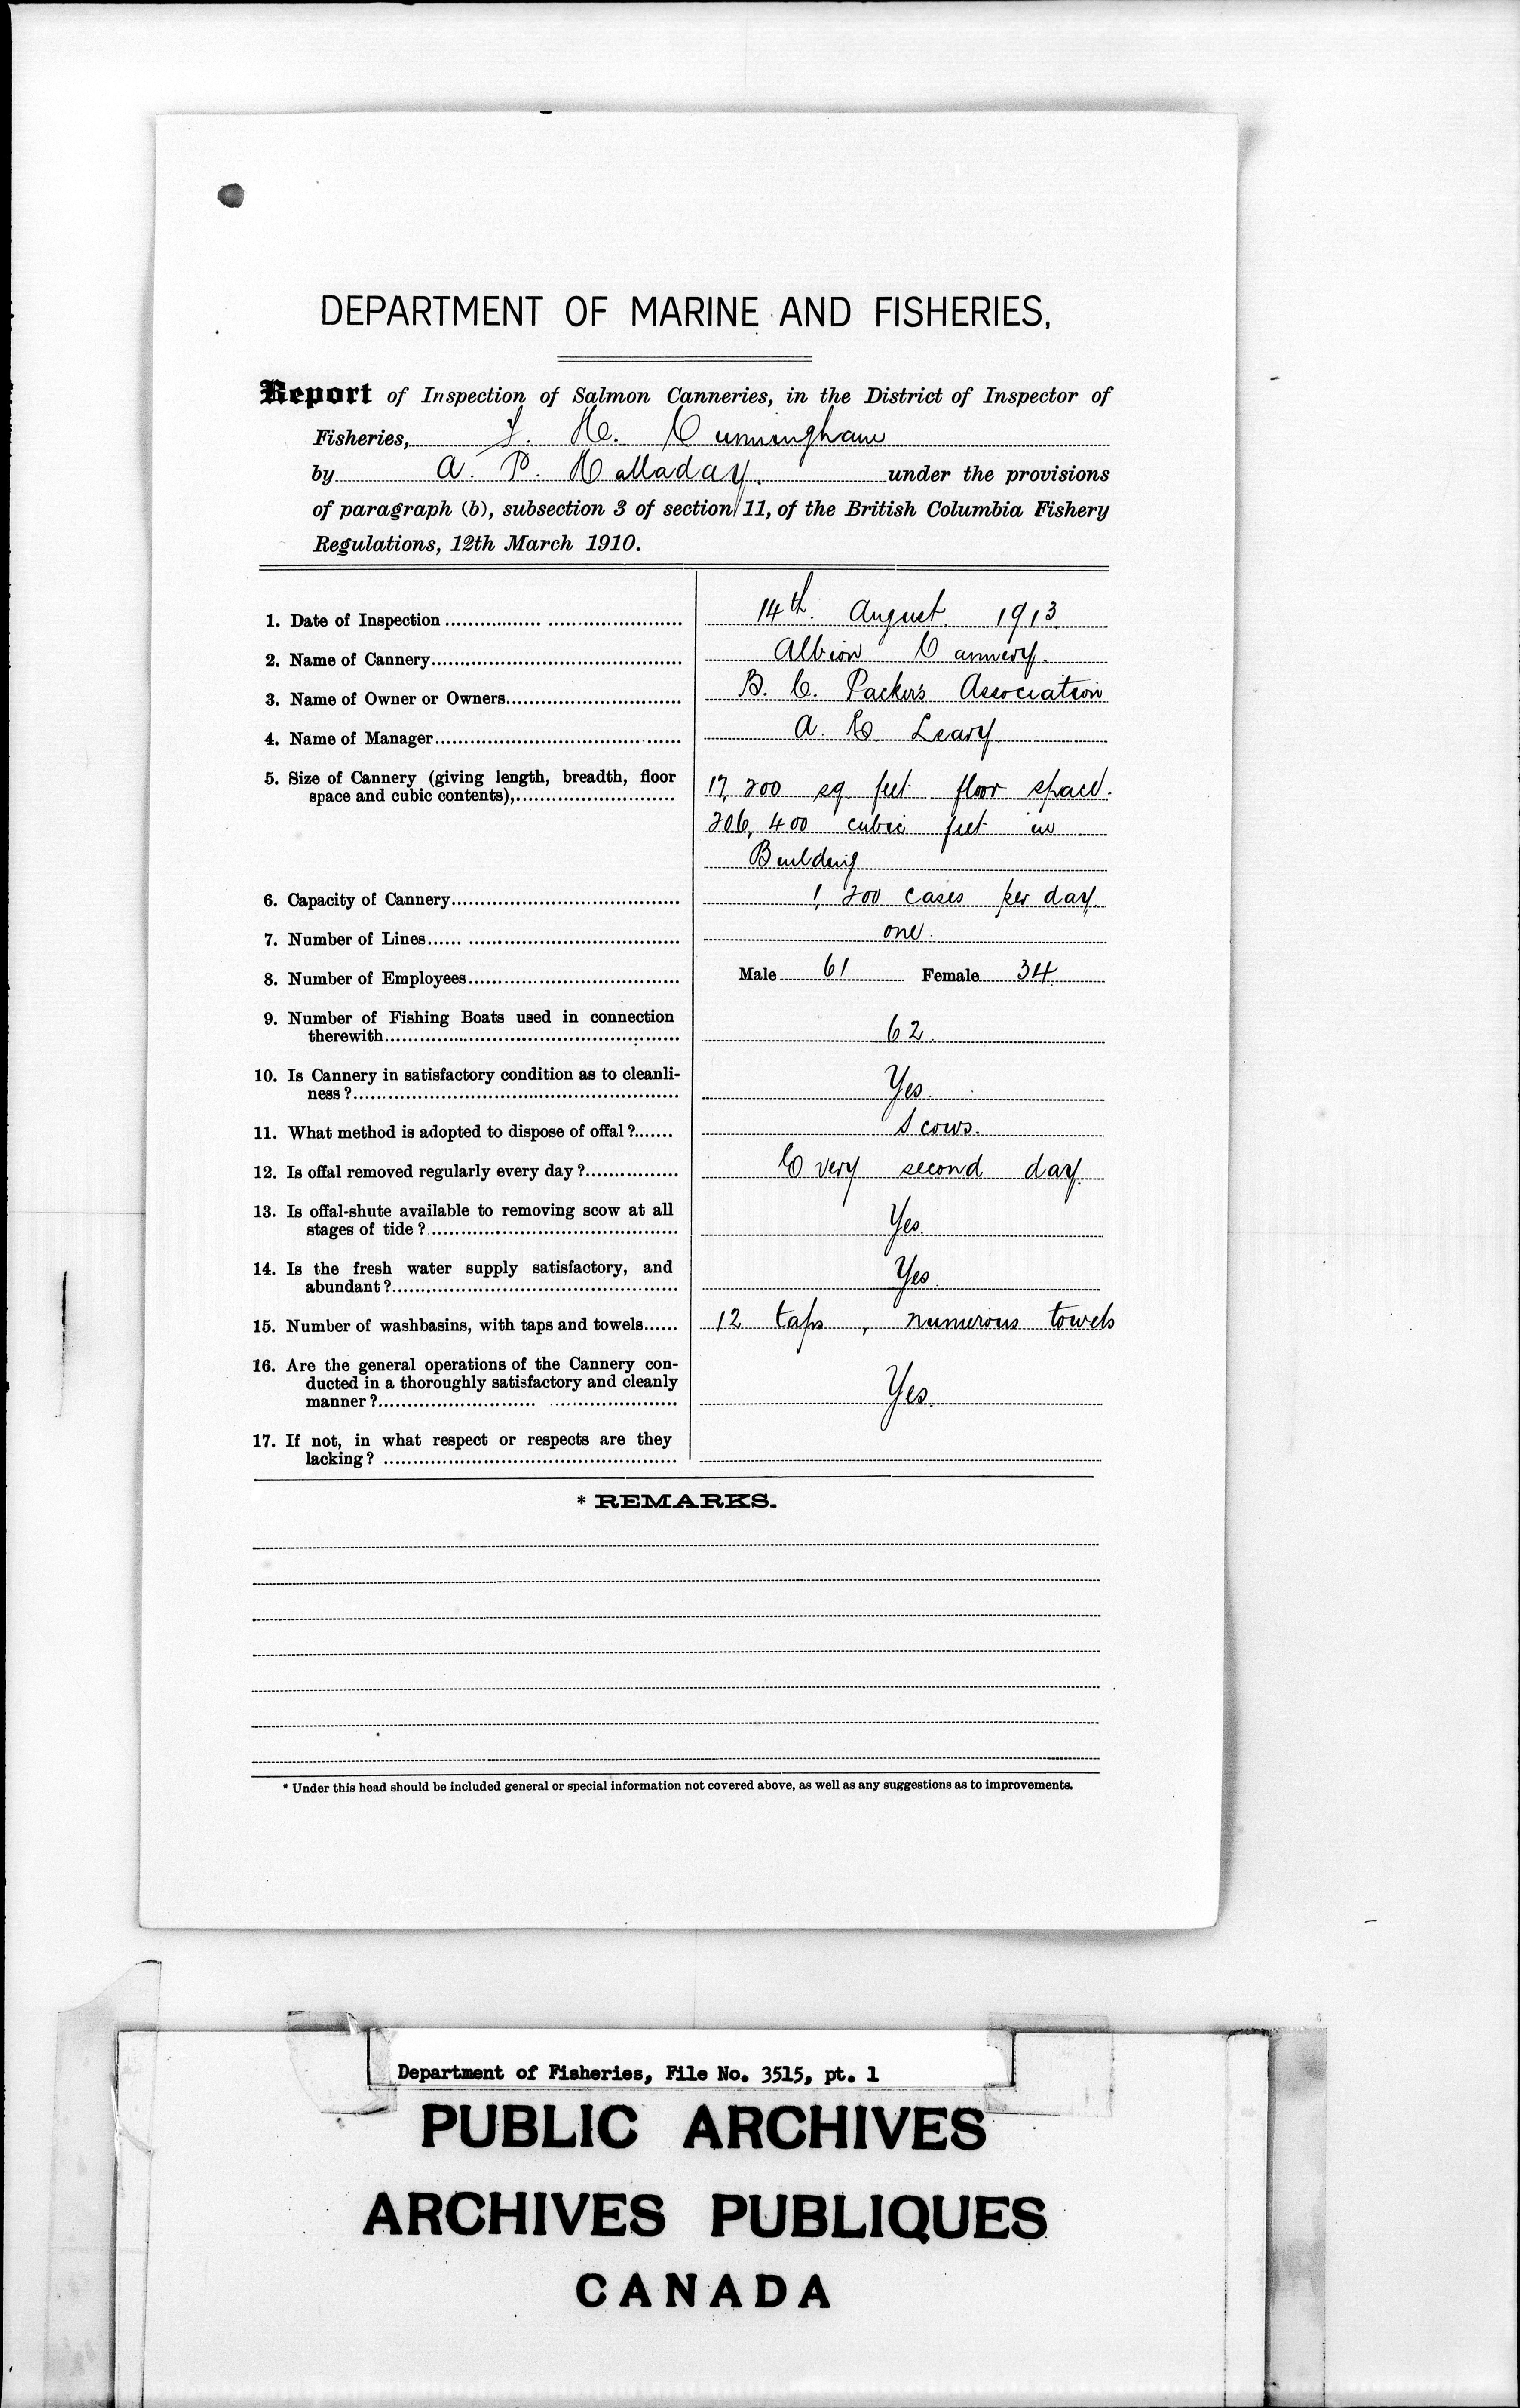 DEPARTMENT OF MARINE AND FISHERIES,
Report of Inspection of Salmon Canneries, in the District of Inspector of
Fisheries, F. H. Cunningham
by A. P. Halladay. under the provisions
of paragraph (b), subsection 3 of section 11, of the British Columbia Fishery
Regulations, 12th March 1910.
1. Date of Inspection 14th. August 1913
2. Name of Cannery Albion Cannery.
3. Name of Owner or Owners B. C. Packers Association
4. Name of Manager A. E. Leary
5. Size of Cannery (giving length, breadth, floor
space and cubic contents), 17,200 sq feet floor space.
206,400 cubic feet in
Building
6. Capacity of Cannery 1,200 cases per day
7. Number of Lines one.
8. Number of Employees Male 61 Female 34
9. Number of Fishing Boats used in connection
therewith 62.
10. Is Cannery in satisfactory condition as to cleanli-
ness? Yes.
11. What method is adopted to dispose of offal? Scows.
12. Is offal removed regularly every day? Every second day.
13. Is offal-shute available to removing scow at all
stages of tide? Yes.
14. Is the fresh water supply satisfactory, and
abundant? Yes.
15. Number of washbasins, with taps and towels 12 taps, numerous towels
16. Are the general operations of the Cannery con-
ducted in a thoroughly satisfactory and cleanly
manner? Yes.
17. If not, in what respect or respects are they
lacking?
* REMARKS.
* Under this head should be included general or special information not covered above, as well as any suggestions as to improvements.
Department of Fisheries, File No. 3515, pt. 1
PUBLIC ARCHIVES
ARCHIVES PUBLIQUES
CANADA